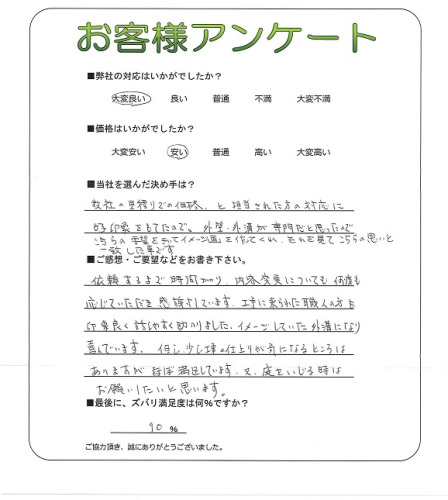 お客様アンケート
■弊社の対応はいかがでしたか？
大変良い　良い　普通　不満　大変不満
■価格はいかがでしたか？
大変安い　安い　普通　高い　大変高い
■当社を選んだ決め手は？
数社の見積りでの価格、と担当された方の対応に
好印象をもてたので。外壁・外溝が専門だと思ったので
こちらの希望をきいてイメージ画を作ってくれ、それを見てこちらの思いと
一致した事です
■ご感想・ご要望などをお書き下さい。
依頼するまで時間かかり、内容変更についても何度も
応じていただき感謝しています。工事に来られた職人の方も
印象良く話やすく助かりました。イメージしていた外溝になり
喜んでいます。但し、少し壊の仕上りが気になるところは
ありますがほぼ満足しています。又、庭をいじる時は
お願いしたいと思います。
■最後に、ズバリ満足度は何%ですか？
90 %
ご協力頂き、誠にありがとうございました。